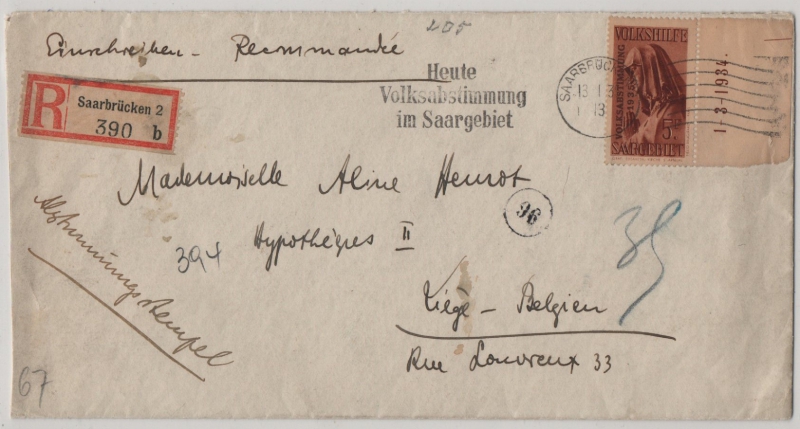 205
Einschreiben - Recommandée
R
Saarbrücken 2
390 b
Heute
Volksabstimmung
im Saargebiet
SAARBRÜC
13 1 3
13
VOLKSHILFE
VOLKSABSTIMMUNG
1935
5 F
SAARGEBIET
1-3-1934.
Mademoiselle Aline Henrot
96
394
Hypothèques II
35
Liège - Belgien
Rue Louvrex 33
Abstimmungsstempel
67